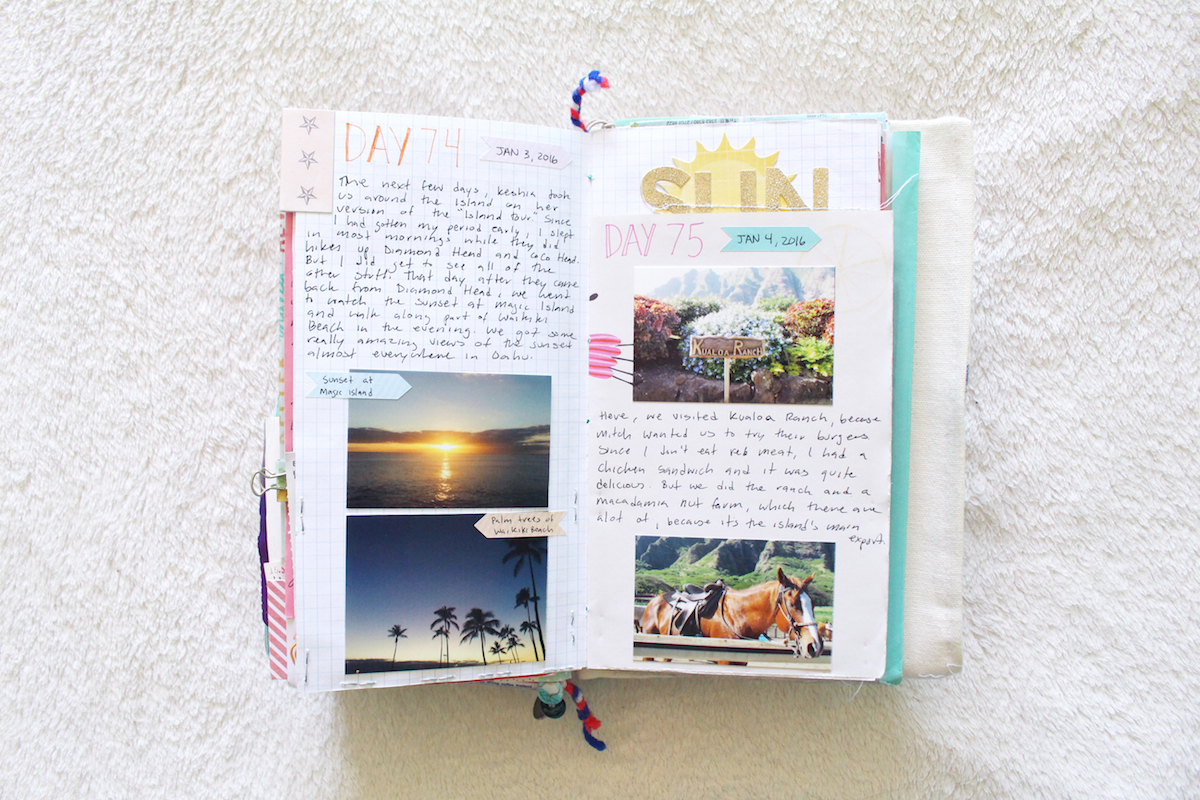 DAY 74
JAN 3, 2016
The next few days, Keshia took
us around the island on her
version of the "island tour." Since
I had gotten my period early, I slept
in most mornings while they did
hikes up Diamond Head and Coco Head.
But I did get to see all of the
other stuff. That day, after they came
back from Diamond Head, we went
to watch the sunset at Magic Island
and walk along part of Waikiki
Beach in the evening. We got some
really amazing views of the sunset
almost everywhere in Oahu.
Sunset at
Magic Island
Palm trees of
Waikiki Beach
SUN
DAY 75
JAN 4, 2016
KUALOA RANCH
Here, we visited Kualoa Ranch, because
Mitch wanted us to try their burgers
Since I don't eat red meat, I had a
chicken sandwich and it was quite
delicious. But we did the ranch and a
macadamia nut farm, which there are
alot of, because it's the island's main
export.